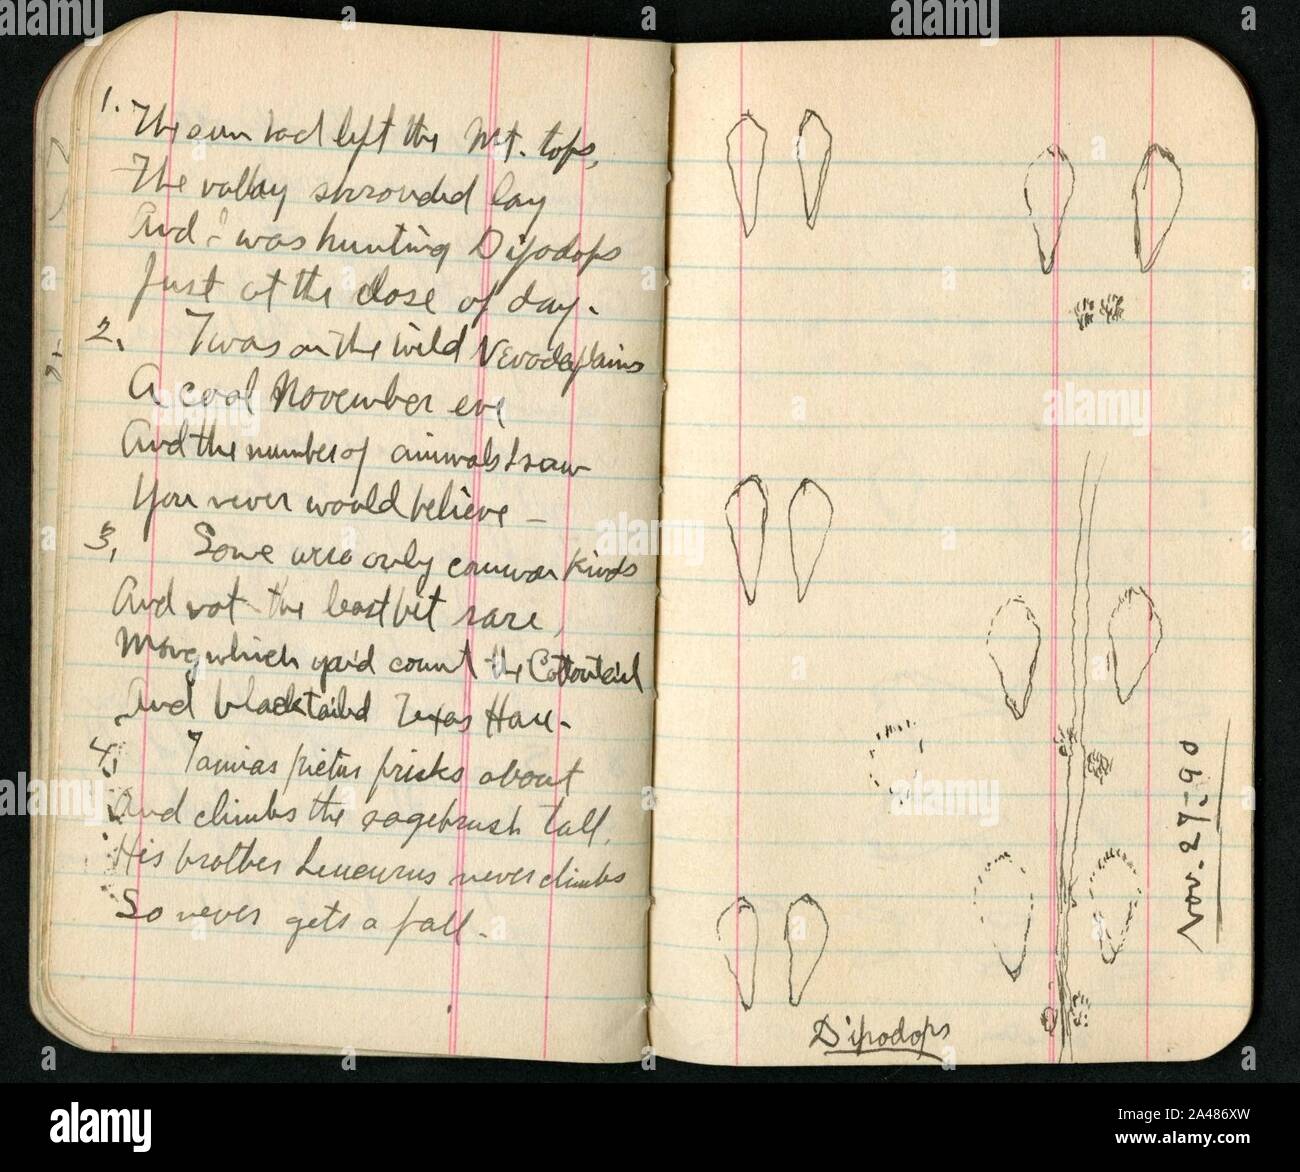 1. The sun had left the Mt. tops,
The valley shrouded lay
And I was hunting Dipodops
Just at the close of day.
2. Twas on the wild Nevada plains
A cool November eve
And the number of animals I saw
You never would believe —
3. Some were only common kinds
And not the least bit rare,
Mong which you'd count the Cottontail
And blacktailed Texas Hare.
4. Tamias pictus frisks about
And climbs the sagebrush tall,
His brother Leucurus never climbs
So never gets a fall.
Dipodops
Nov. 27-90
alamy
Image ID: 2A486XW
www.alamy.com